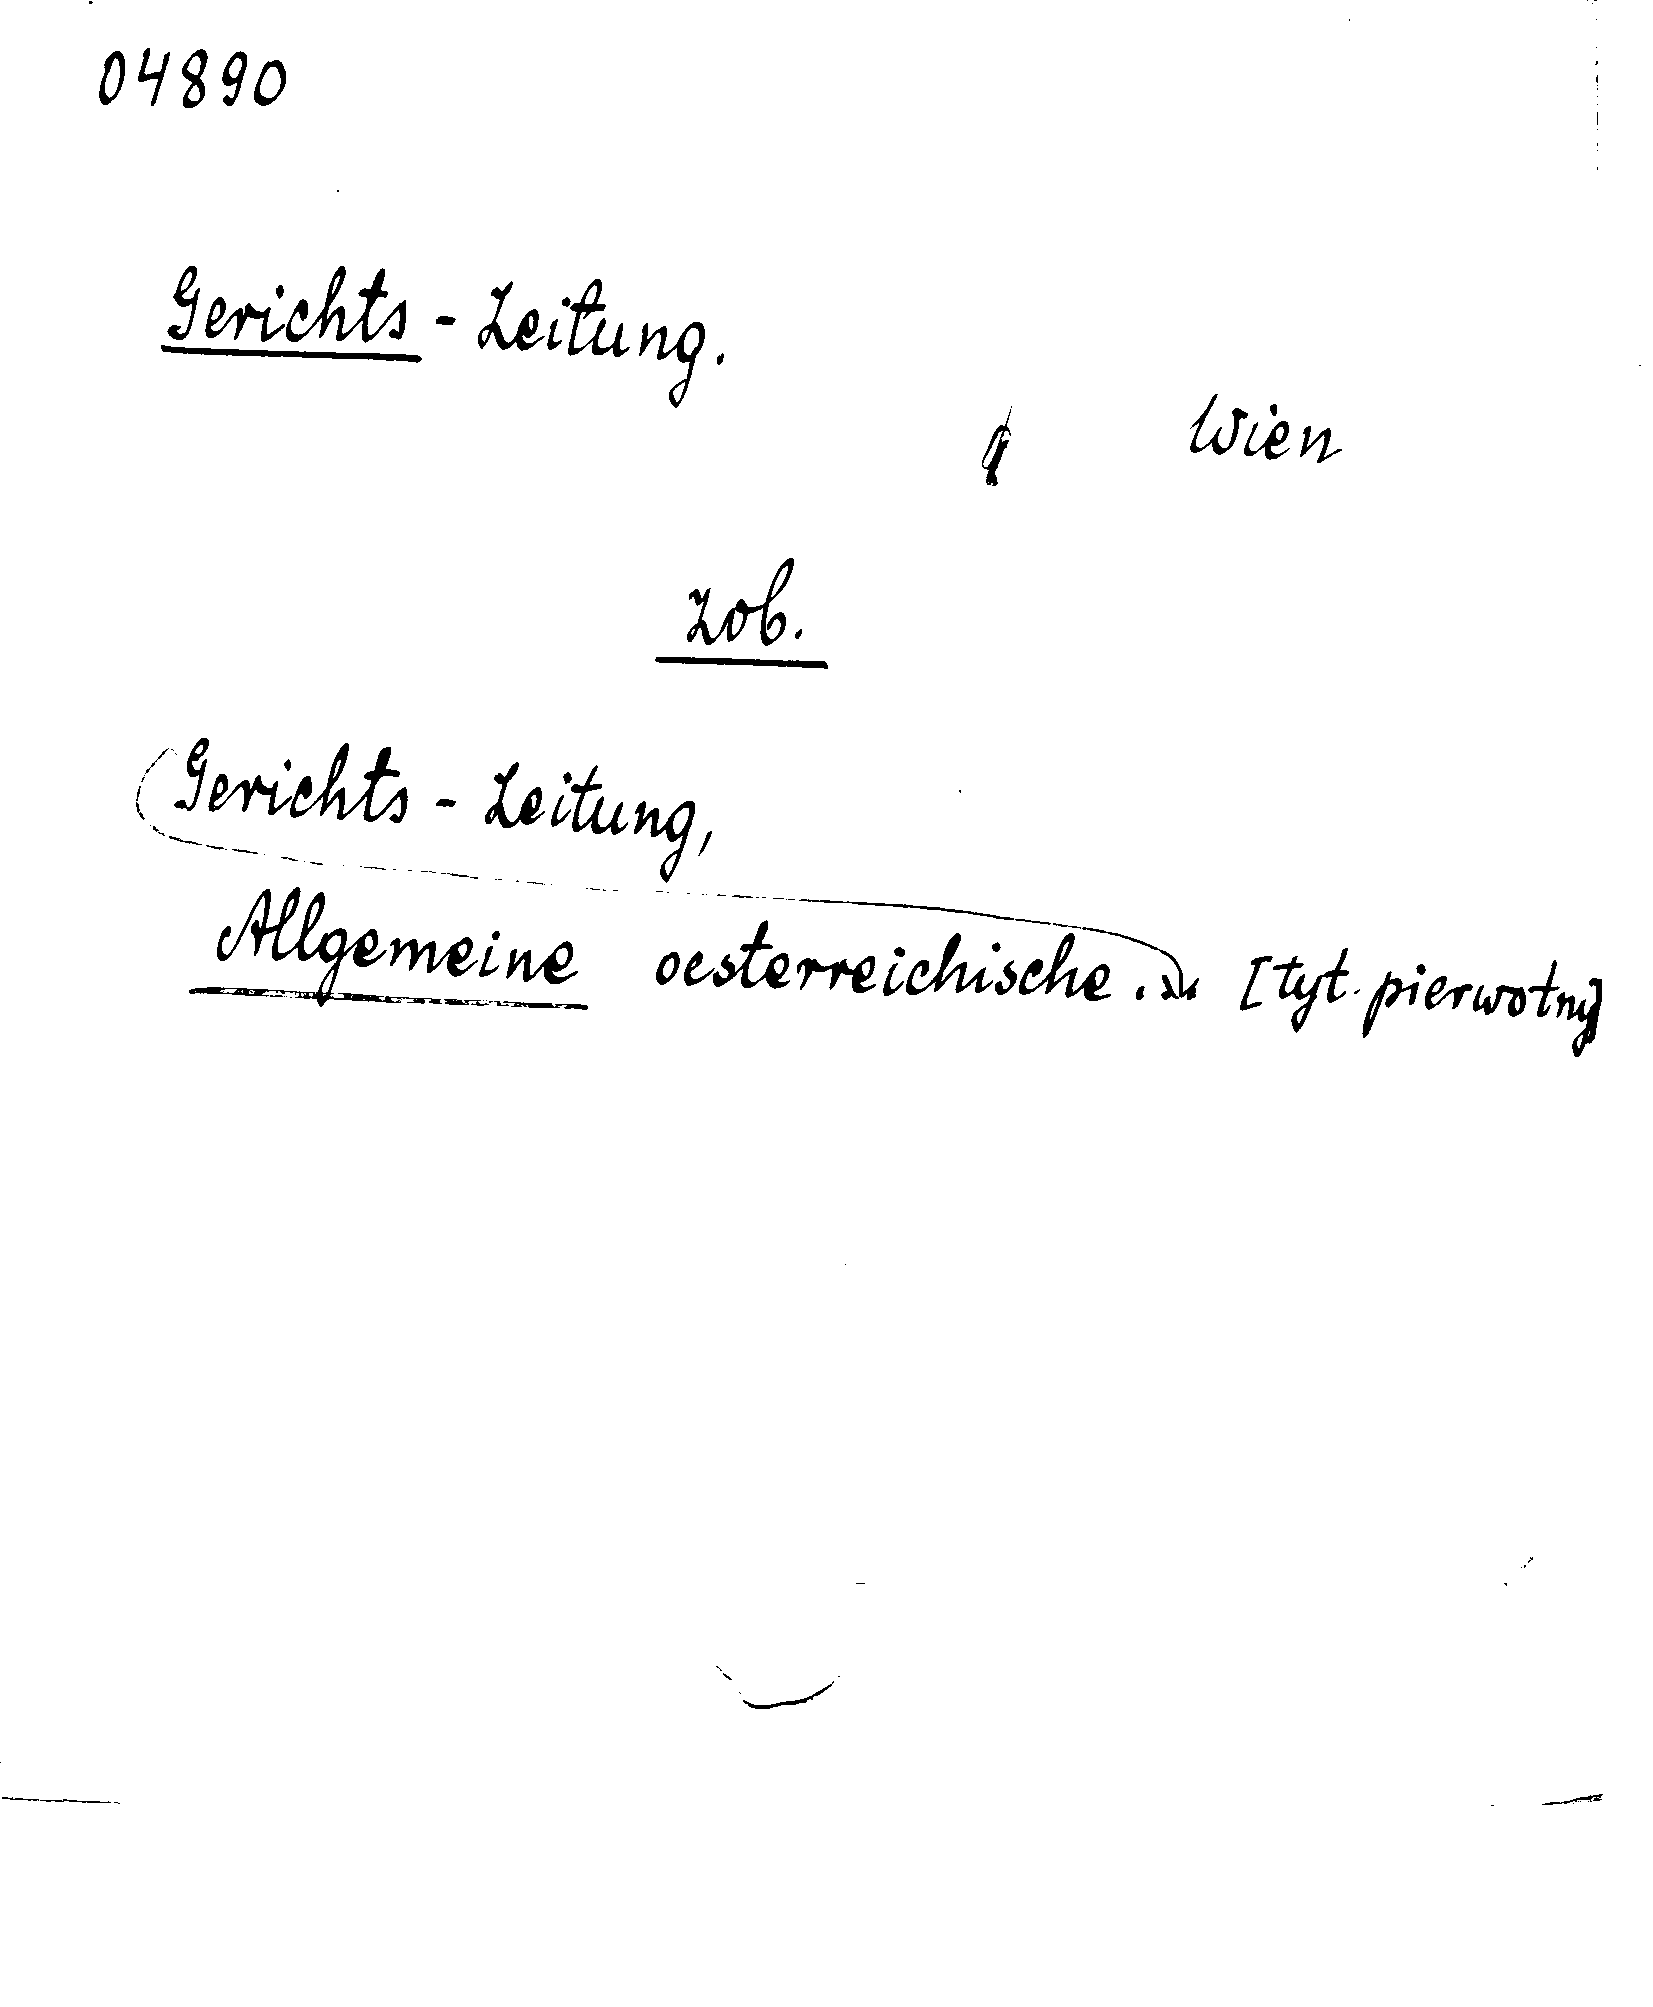 04890
Gerichts - Zeitung.
Wien
Zob.
Gerichts - Zeitung,
Allgemeine oesterreichische. [tyt. pierwotny]